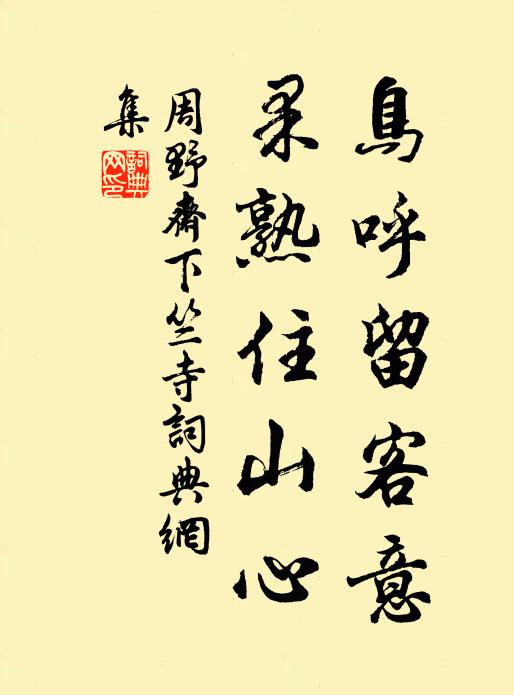 鳥呼留客意
果熟住山心
周野齋下竺寺詞典網
集
詞典網印